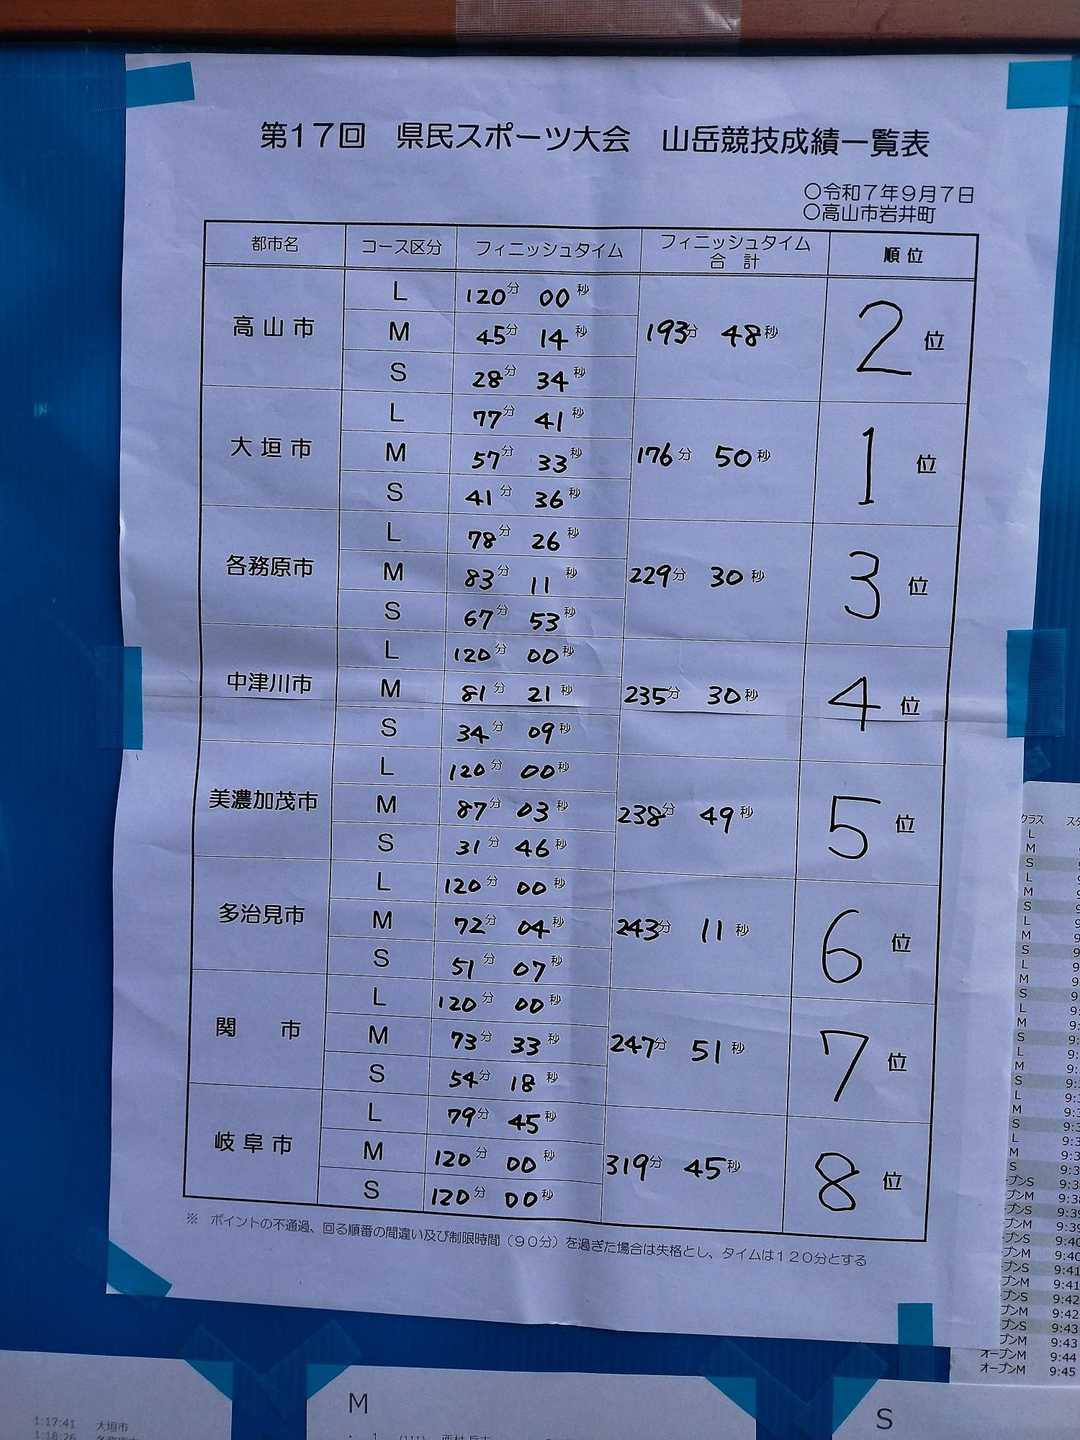 第17回　県民スポーツ大会　山岳競技成績一覧表
〇令和7年9月7日
〇高山市岩井町
都市名 コース区分 フィニッシュタイム フィニッシュタイム合計 順位
高山市 L 120分 00秒 193分 48秒 2位
M 45分 14秒
S 28分 34秒
大垣市 L 77分 41秒 176分 50秒 1位
M 57分 33秒
S 41分 36秒
各務原市 L 78分 26秒 229分 30秒 3位
M 83分 11秒
S 67分 53秒
中津川市 L 120分 00秒 235分 30秒 4位
M 81分 21秒
S 34分 09秒
美濃加茂市 L 120分 00秒 238分 49秒 5位
M 87分 03秒
S 31分 46秒
多治見市 L 120分 00秒 243分 11秒 6位
M 72分 04秒
S 51分 07秒
関　市 L 120分 00秒 247分 51秒 7位
M 73分 33秒
S 54分 18秒
岐阜市 L 79分 45秒 319分 45秒 8位
M 120分 00秒
S 120分 00秒
※　ポイントの不通過、回る順番の間違い及び制限時間（90分）を過ぎた場合は失格とし、タイムは120分とする
クラス
L
M
S
L
M
S
L
M
S
L
M
S
L
M
S
L
M
S
L
M
S
L
M
S
プンS
プンM
プンS
プンM
プンS 9:40
プンM 9:40
プンS 9:41
プンM 9:41
プンS 9:42
プンM 9:42
プンS 9:43
プンM 9:43
オープンM 9:44
オープンM 9:45
1:17:41 大垣市
1:18:26
M
S